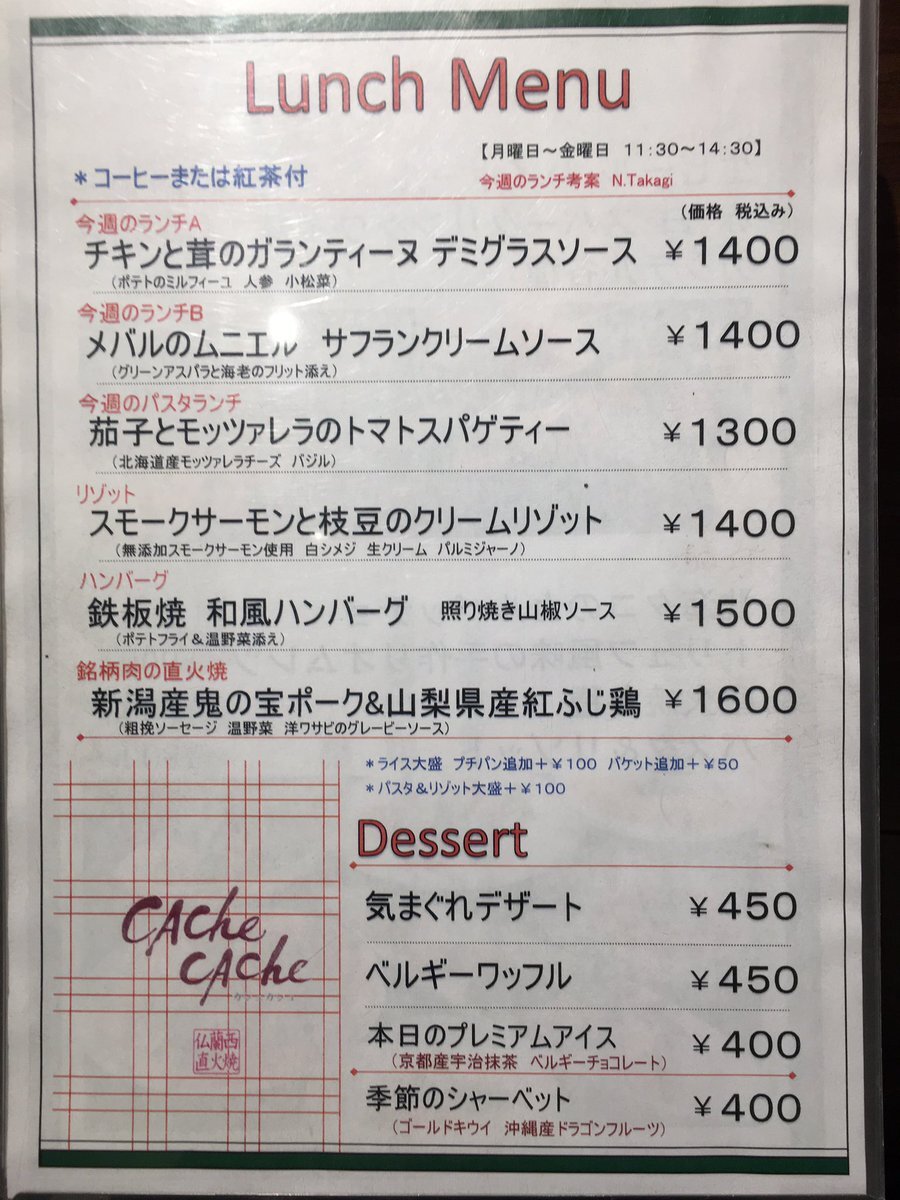 Lunch Menu
【月曜日～金曜日 11:30～14:30】
＊コーヒーまたは紅茶付
今週のランチ考案 N.Takagi
（価格 税込み）
今週のランチA
チキンと茸のガランティーヌ デミグラスソース ￥1400
（ポテトのミルフィーユ 人参 小松菜）
今週のランチB
メバルのムニエル サフランクリームソース ￥1400
（グリーンアスパラと海老のフリット添え）
今週のパスタランチ
茄子とモッツァレラのトマトスパゲティー ￥1300
（北海道産モッツァレラチーズ バジル）
リゾット
スモークサーモンと枝豆のクリームリゾット ￥1400
（無添加スモークサーモン使用 白シメジ 生クリーム パルミジャーノ）
ハンバーグ
鉄板焼 和風ハンバーグ 照り焼き山椒ソース ￥1500
（ポテトフライ＆温野菜添え）
銘柄肉の直火焼
新潟産鬼の宝ポーク&山梨県産紅ふじ鶏 ￥1600
（粗挽ソーセージ 温野菜 洋ワサビのグレービーソース）
＊ライス大盛 プチパン追加＋￥100 バケット追加＋￥50
＊パスタ＆リゾット大盛＋￥100
Dessert
気まぐれデザート ￥450
ベルギーワッフル ￥450
本日のプレミアムアイス ￥400
（京都産宇治抹茶 ベルギーチョコレート）
季節のシャーベット ￥400
（ゴールドキウイ 沖縄産ドラゴンフルーツ）
CAChe
CAChe
仏蘭西
直火焼